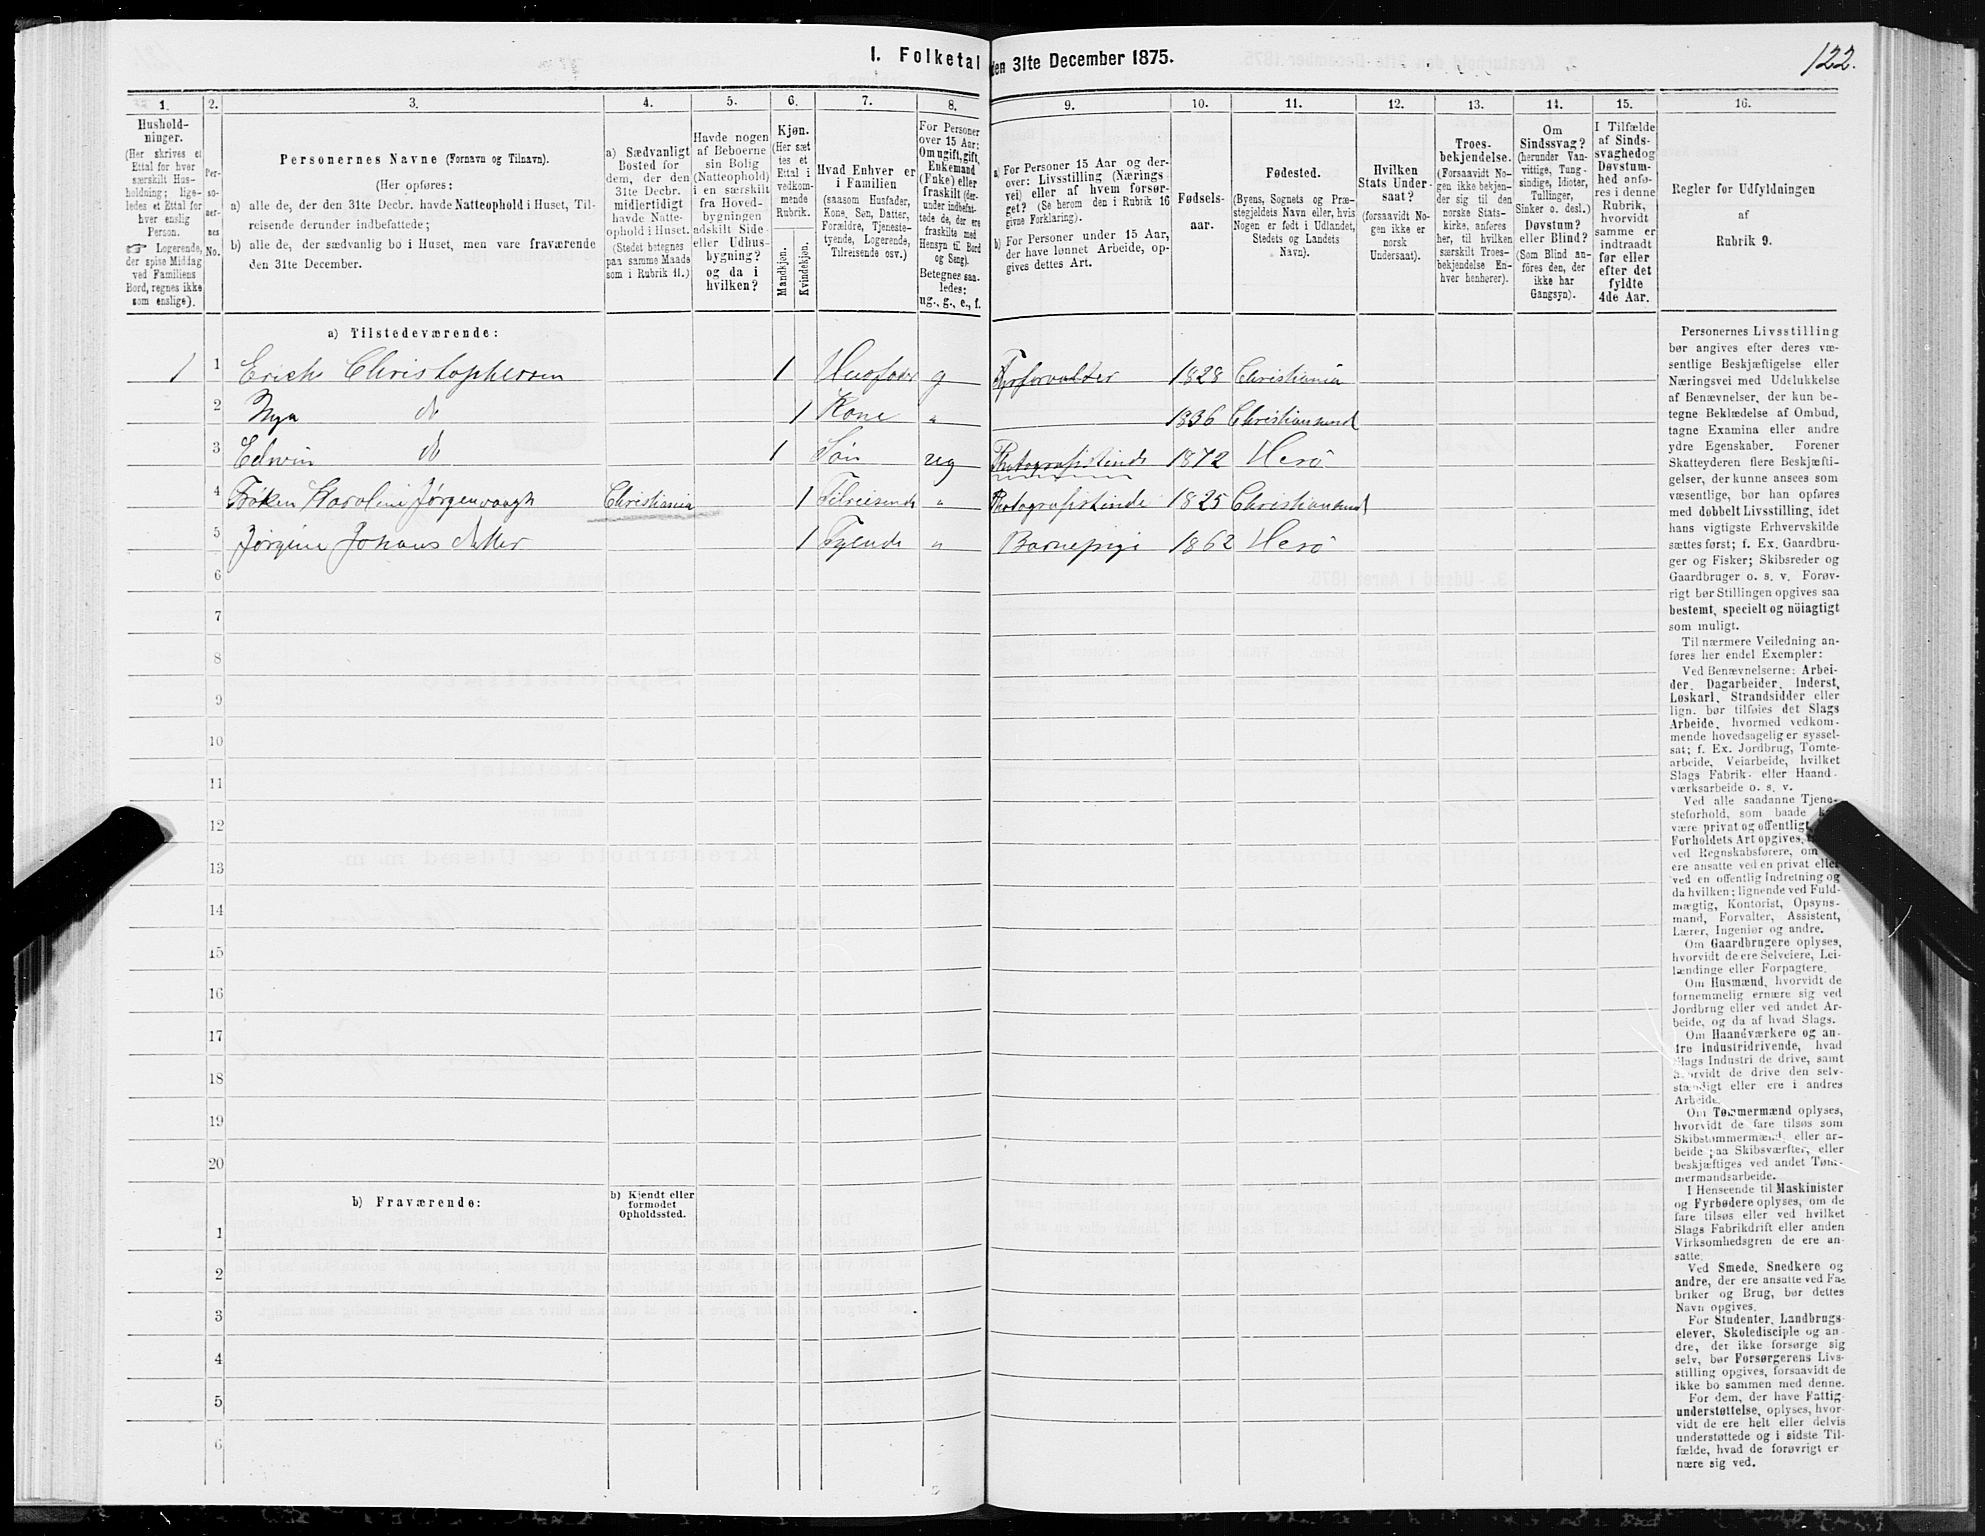 I. Folketal den 31te December 1875.
122.
1.
2.
3.
4.
5.
6.
7.
8.
9.
10.
11.
12.
13.
14.
15.
16.
Hushold-
ninger.
(Her skrives et
Ettal for hver
særskilt Hus-
holdning; lige-
ledes et Ettal for
hver enslig
Person.
☞ Logerende,
der spise Middag
ved Familiens
Bord, regnes ikke
som enslige).
Per-
so-
ner-
nes
No.
Personernes Navne (Fornavn og Tilnavn).
(Her opføres:
a) alle de, der den 31te Decbr. havde Natteophold i Huset, Til-
reisende derunder indbefattede;
b) alle de, der sædvanlig bo i Huset, men vare fraværende
den 31te December.
a) Sædvanligt
Bosted for
dem, der den
31te Decbr.
midlertidigt
havde Natte-
ophold i Huset.
(Stedet betegnes
paa samme Maade
som i Rubrik 11.)
Havde nogen
af Beboerne
sin Bolig
(Natteophold)
i en særskilt
fra Hoved-
bygningen
adskilt Side-
eller Udhus-
bygning?
og da i
hvilken?
Kjøn.
(Her sæt-
tes et
Ettal i
vedkom-
mende
Rubrik.
Mandkjøn.
Kvindekjøn.
Hvad Enhver er
i Familien
(saasom Husfader,
Kone, Søn, Datter,
Forældre, Tjeneste-
tyende, Logerende,
Tilreisende osv.)
For Personer
over 15 Aar:
Om ugift, gift,
Enkemand
(Enke) eller
fraskilt (der-
under indbefat-
tede de, der ere
fraskilte med
Hensyn til Bord
og Seng).
Betegnes saa-
ledes:
ug., g., e., f.
a) For Personer 15 Aar og der-
over: Livsstilling (Nærings-
vei) eller af hvem forsør-
get? (Se herom den i Rubrik 16
givne Forklaring).
b) For Personer under 15 Aar,
der have lønnet Arbeide, op-
gives dettes Art.
Fødsels-
aar.
Fødested.
(Byens, Sognets og Præ-
stegjeldets Navn eller, hvis
Nogen er født i Udlandet,
Stedets og Landets
Navn).
Hvilken
Stats Under-
saat?
(forsaavidt No-
gen ikke er
norsk
Undersaat).
Troes-
bekjendelse.
(Forsaavidt No-
gen ikke bekjen-
der sig til den
norske Stats-
kirke, anføres
her, til hvilken
særskilt Troes-
bekjendelse En-
hver henhører).
Om
Sindssvag?
(herunder Van-
vittige, Tung-
sindige, Idioter,
Tullinger,
Sinker o. desl.)
Døvstum?
eller Blind?
(Som Blind an-
føres den, der
ikke har
Gangsyn).
I Tilfælde
af Sinds-
svaghed og
Døvstum-
hed anfø-
res i denne
Rubrik,
hvorvidt
samme er
indtraadt
før eller
efter det
fyldte
4de Aar.
Regler før Udfyldningen
af
Rubrik 9.
a) Tilstedeværende:
1 1 Erich Christophersen 1 Husfader g Fyrforvalter 1828 Christiania
2 do 1 Kone " 1836 Christiansund
3 Edwin do 1 Søn ug 1872 Herø
4 Frøken Karoline Jørgenvaagh Christiania 1 Tilreisende " Photografistinde 1825 Christiansund
5 Jørgine Johans datter 1 Tyende " Barnepige 1862 Herø
6
7
8
9
10
11
12
13
14
15
16
17
18
19
20
b) Fraværende:
b) Kjendt eller
formodet
Opholdssted.
1
2
3
4
5
6
Personernes Livsstilling
bør angives efter deres væ-
sentlige Beskjæftigelse eller
Næringsvei med Udelukkelse
af Benævnelser, der kun be-
tegne Beklædelse af Ombud,
tagne Examina eller andre
ydre Egenskaber. Forener
Skatteyderen flere Beskjæfti-
gelser, der kunne ansees som
væsentlige, bør han opføres
med dobbelt Livsstilling, idet
hans vigtigste Erhvervskilde
sættes først; f. Ex. Gaardbru-
ger og Fisker; Skibsreder og
Gaardbruger o. s. v. Forøv-
rigt bør Stillingen opgives saa
bestemt, specielt og nöiagtigt
som muligt.
Til nærmere Veiledning an-
føres her endel Exempler:
Ved Benævnelserne: Arbei-
der, Dagarbeider, Inderst,
Løskarl, Strandsidder eller
lign. bør tilføies det Slags
Arbeide, hvormed vedkom-
mende hovedsagelig er syssel-
sat; f. Ex. Jordbrug, Tomte-
arbeide, Veiarbeide, hvilket
Slags Fabrik- eller Haand-
værksarbeide o. s. v.
Ved alle saadanne Tjene-
steforhold, som baade
være privat og offentligt,
Forholdets Art opgives,
ved Regnskabsførere, om
ere ansatte ved en privat eller
ved en offentlig Indretning og
da hvilken; lignende ved Fuld-
mægtig, Kontorist, Opsyns-
mand, Forvalter, Assistent,
Lærer, Ingeniør og andre.
Om Gaardbrugere oplyses,
hvorvidt de ere Selveiere, Lei-
lændinge eller Forpagtere.
Om Husmænd, hvorvidt de
fornemmelig ernære sig ved
Jordbrug eller ved andet Ar-
beide, og da af hvad Slags.
Om Haandværkere og an-
dre Industridrivende, hvad
Slags Industri de drive, samt
hvorvidt de drive den selv-
stændigt eller ere i andres
Arbeide.
Om Tømmermænd oplyses,
hvorvidt de fare tilsøs som
Skibstømmermænd eller ar-
beide paa Skibsværfter, eller
beskjæftiges ved andet Tøm-
mermandsarbeide.
I Henseende til Maskinister
og Fyrbødere oplyses, om de
fare tilsøs eller ved hvilket
Slags Fabrikdrift eller anden
Virksomhedsgren de ere an-
satte.
Ved Smede, Snedkere og
andre, der ere ansatte ved Fa-
briker og Brug, bør dettes
Navn opgives.
For Studenter, Landbrugs-
elever, Skoledisciple og an-
dre, der ikke forsørge sig
selv, bør Forsørgerens Livs-
stilling opgives, forsaavidt de
ikke bo sammen med denne.
For dem, der have Fattig-
understøttelse, oplyses, hvor-
vidt de ere helt eller delvis
understøttede og i sidste Til-
fælde, hvad de forøvrigt er-
nære sig ved.